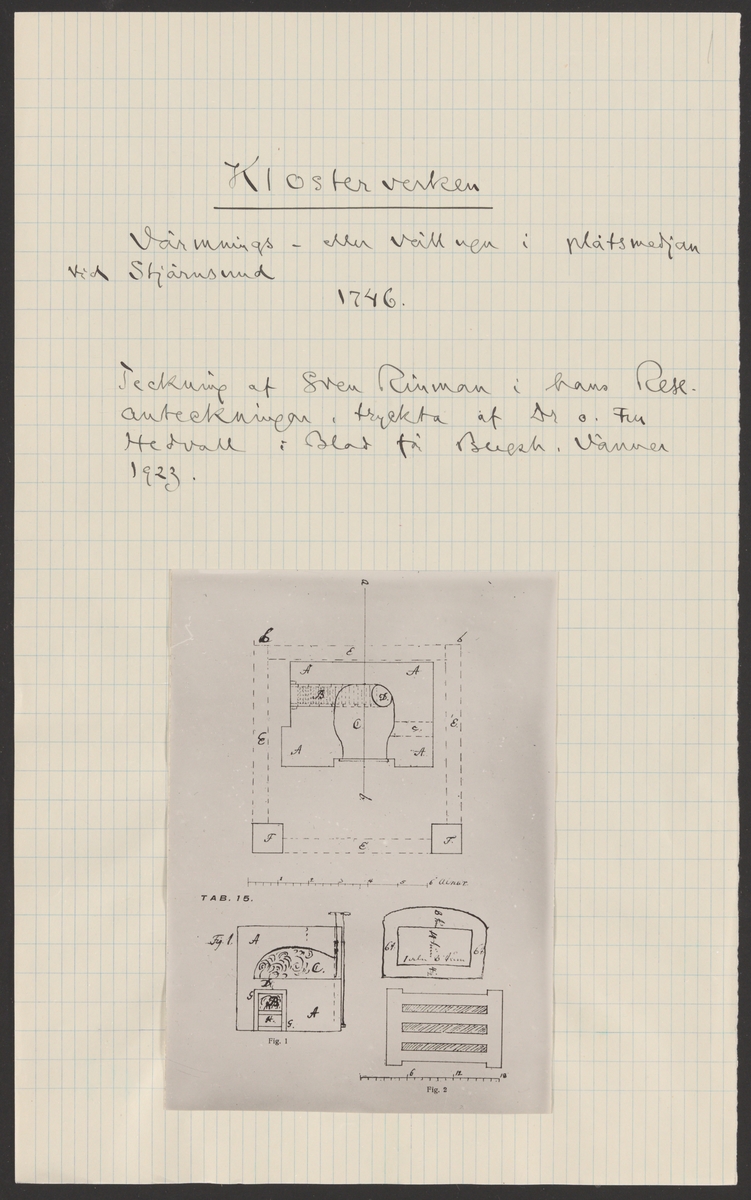 Klosterverken
Värmnings- eller vällugn i plåtsmedjan
vid Stjärnsund
1746.
Teckning af Sven Rinman i hans Rese-
anteckningar, tryckta af Dr o. Fru
Hedvall i Blad fr Bergsh. Vänner
1923.
a
b b
E
A A
B D
C
E G E
A A
b
F E F.
1 2 3 4 5 6 Alnar.
TAB. 15.
Fig 1. A
C.
D.
G B
H. G.
A
Fig. 1
6t 6t
1 aln 3 tum
6 12 18
Fig. 2